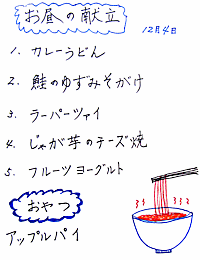 お昼の献立
12月4日
1. カレーうどん
2. 鮭のゆずみそがけ
3. ラーパーツァイ
4. じゃが芋のチーズ焼
5. フルーツヨーグルト
おやつ
アップルパイ